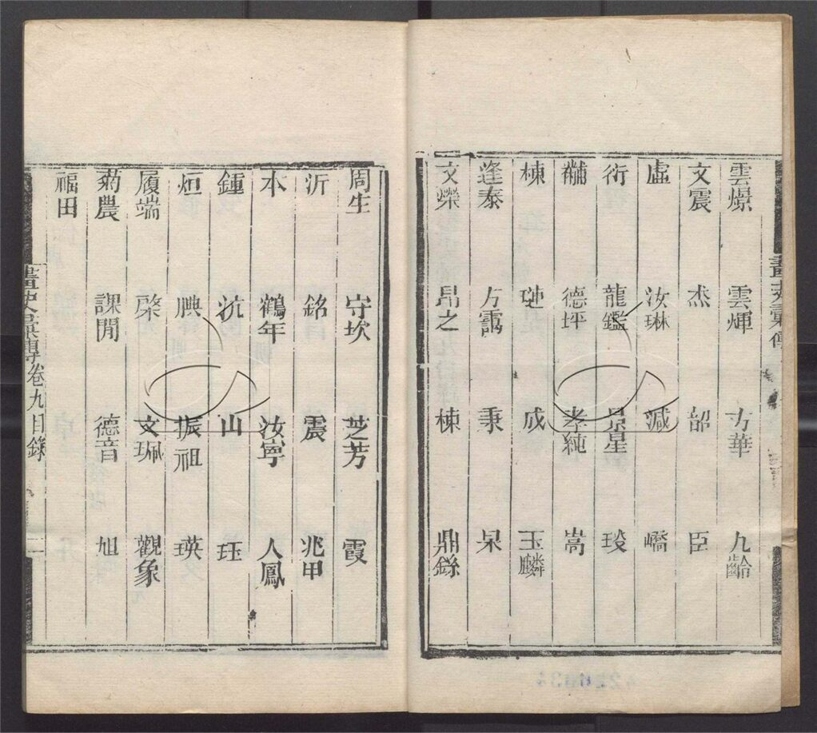 畫史彙傳
雲憬 雲輝 方華 九齡
文震 杰 韶 臣
虛 汝琳 減 嶠
衍 龍鑑 景星 琰
黼 德坪 孝純 嵩
棟 璉 成 玉麟
逢泰 方靄 秉 杲
文燦 昂之 棟 鼎銘
周生 守坎 芝芳 霞
沂 銘 震 兆甲
本 鶴年 汝寧 人鳳
鍾 沆 山 珏
烜 㬢 振祖 瑛
履端 棨 文珮 觀象
菊農 課閒 德音 旭
福田
畫史彙傳卷九目錄 二